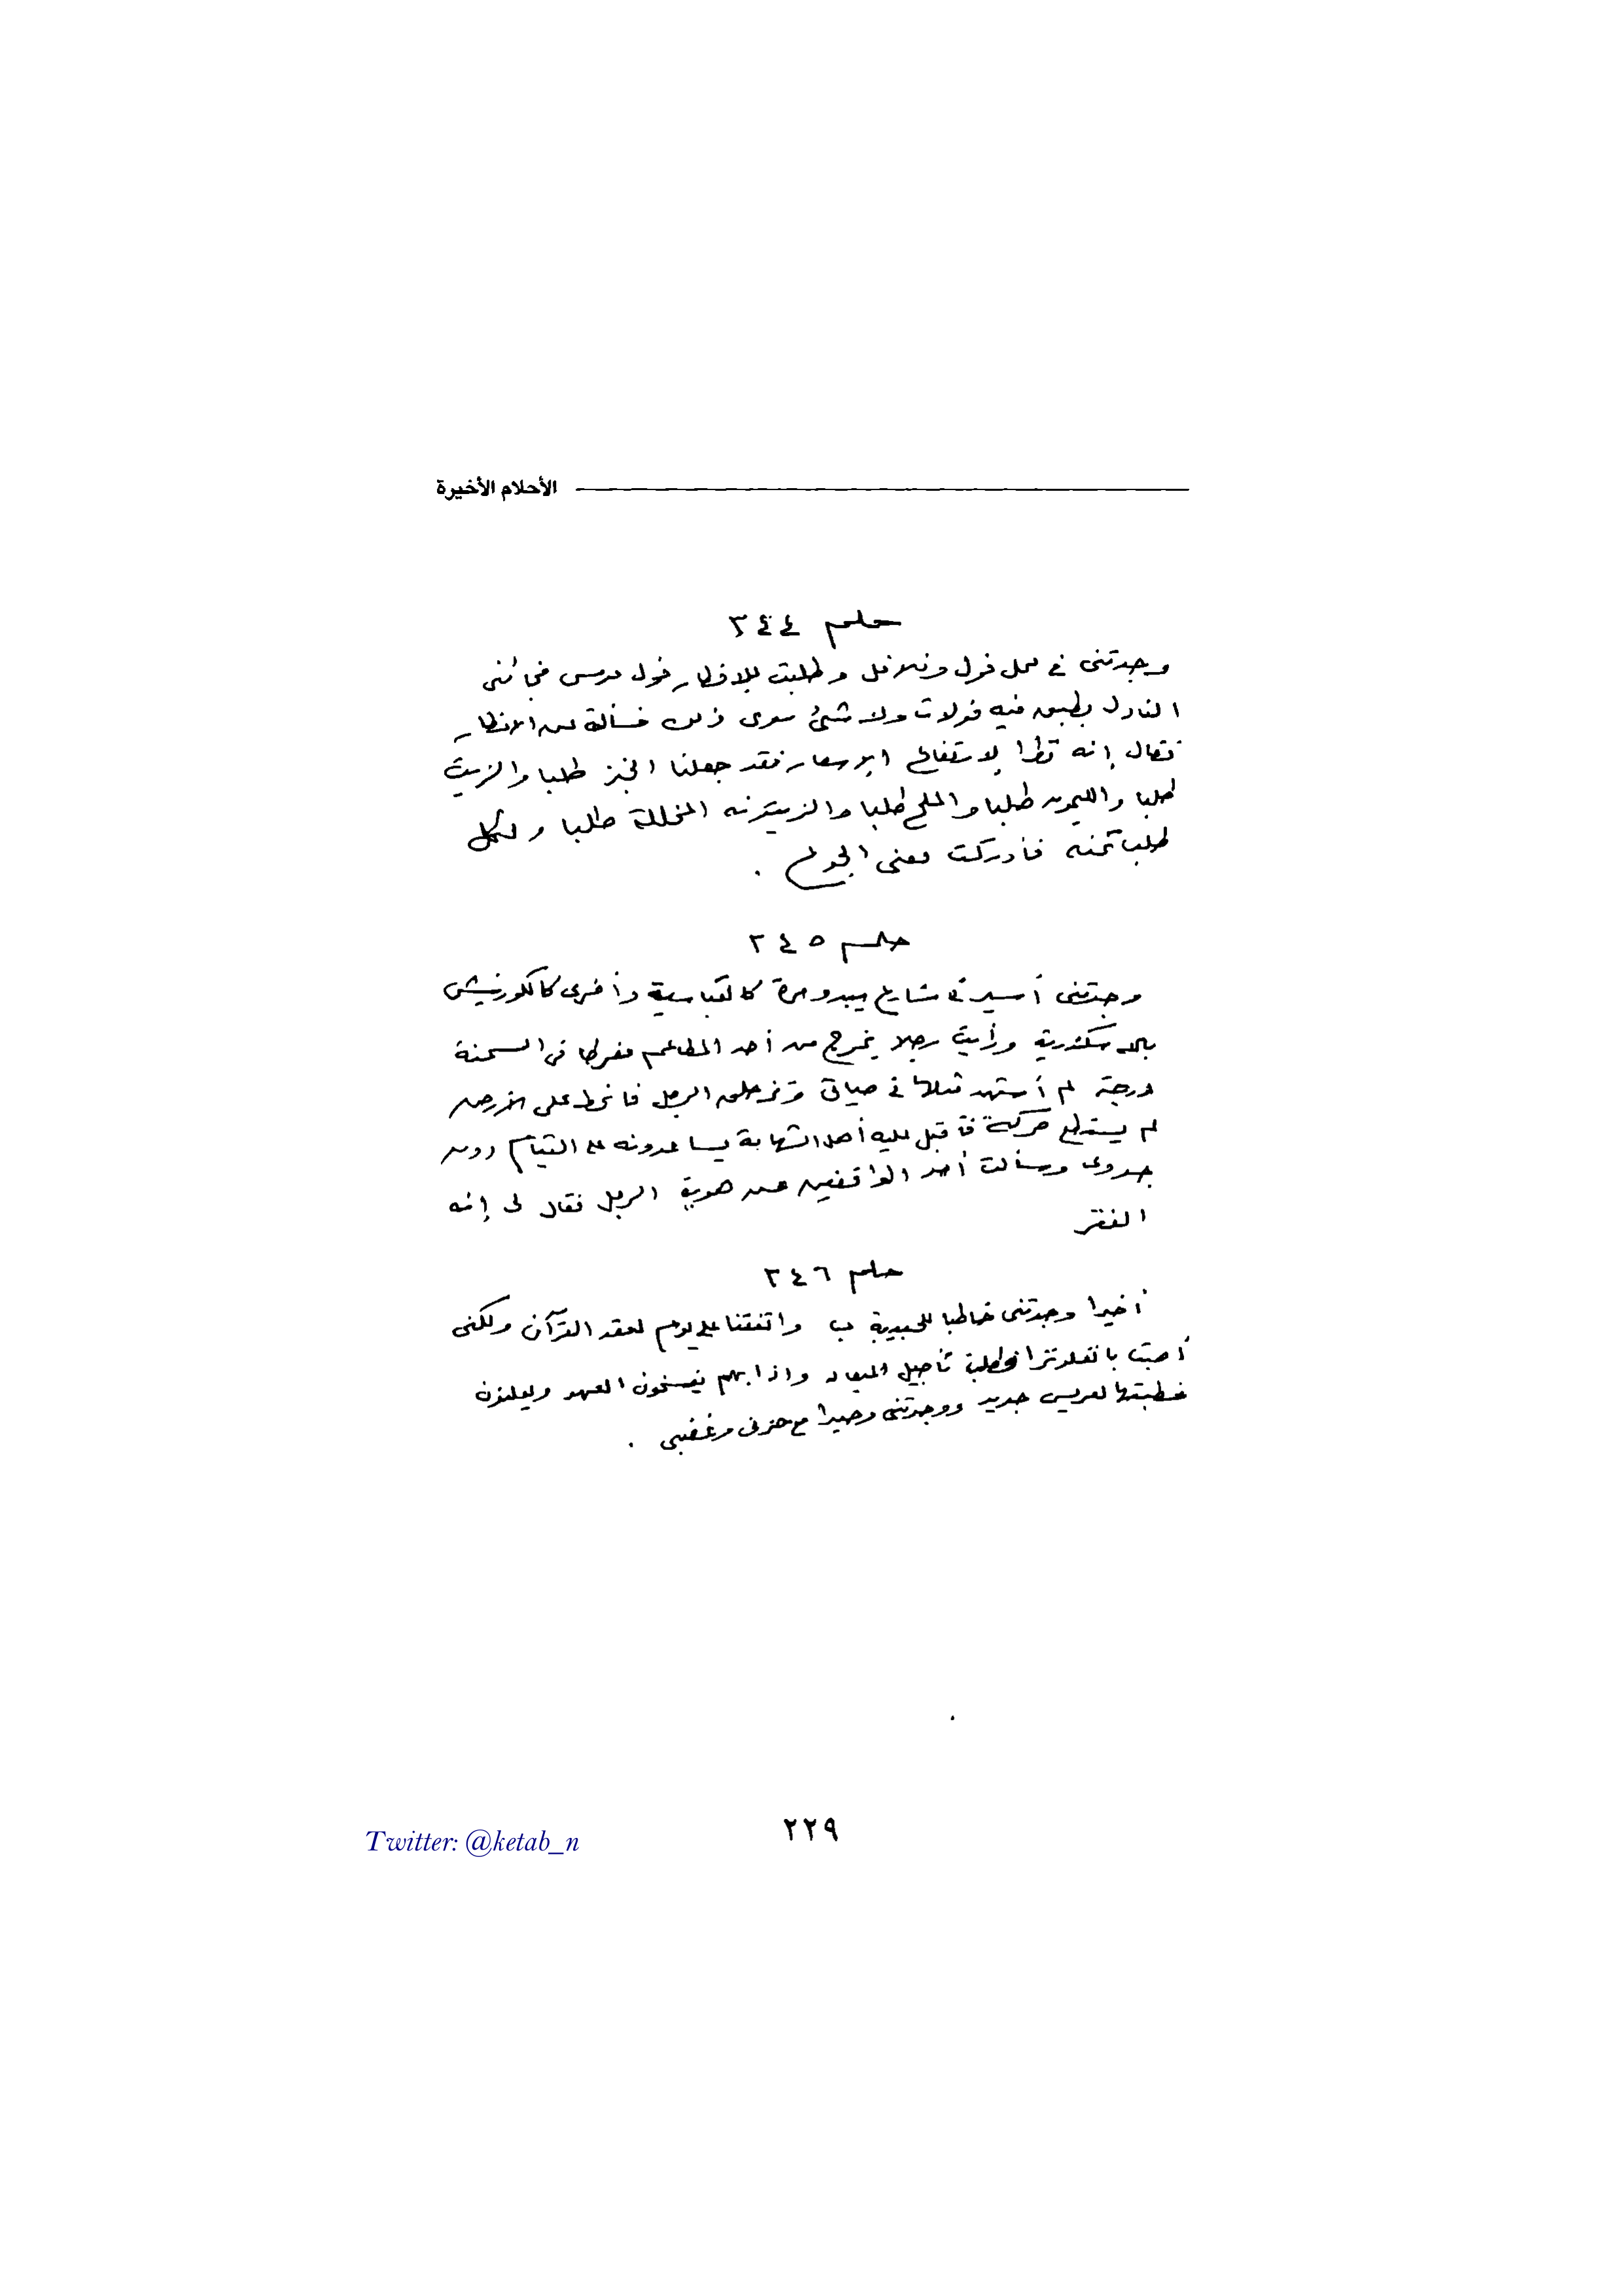 الأحلام الأخيرة
حلم ٣٤٤
وجدتنى فى محل فول وفلافل وطلبت للإفطار فول مدمس فجائنى
النادل بطبق فيه فولات ولا شئ سوى ذلك فسألة عن الافطار
فقال إنه نظرا لإرتفاع الاسعار فقد جعلنا الخبز طلبا والزيت
طلبا والليمون طلبا والملح طلبا والزيتونه المخللة طلبا ولكل
طلب ثمنه فأدركت معنى الجوع .
حلم ٢٤٥
وجدتنى أسير فى شارع يبدو مرة كالعباسية وأخرى كالكورنيش
بالاسكندرية ورأيت رجلا يخرج من أحد المطاعم مفرطا فى السمنة
درجة لم أشهد مثلها فى حياتى وتزحلق الرجل فانحط على الارض
لم يستطع حركة فأقبل عليه أهل الشهامة يساعدونه على القيام دون
جدوى وسألت أحد الواقفين عن هوية الرجل فقال لى إنه
الفقر
حلم ٢٤٦
أخيرا وجدتنى خاطبا للحبيبة ب واتفقنا على يوم لعقد القرآن ولكنى
أصبت بانفلونزا فطلبت تأجيل الميعاد واذا بهم يفسخون العهد ويعلنون
خطبتها لعريس جديد ووجدتنى وحيدا مع حزنى وغضبى .
٢٢٩
Twitter: @ketab_n